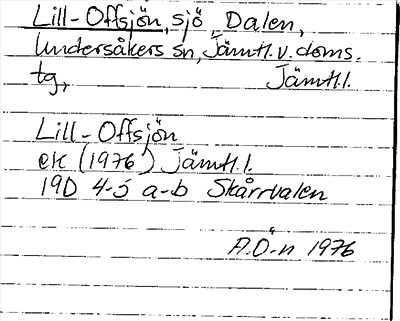 Lill-Offsjön, sjö, Dalen,
Undersåkers sn, Jämtl. v. doms.
tg, Jämtl.l.
Lill-Offsjön
ek (1976) Jämtl.l.
19D 4-5 a-b Skårrvalen
A.Ö-n 1976